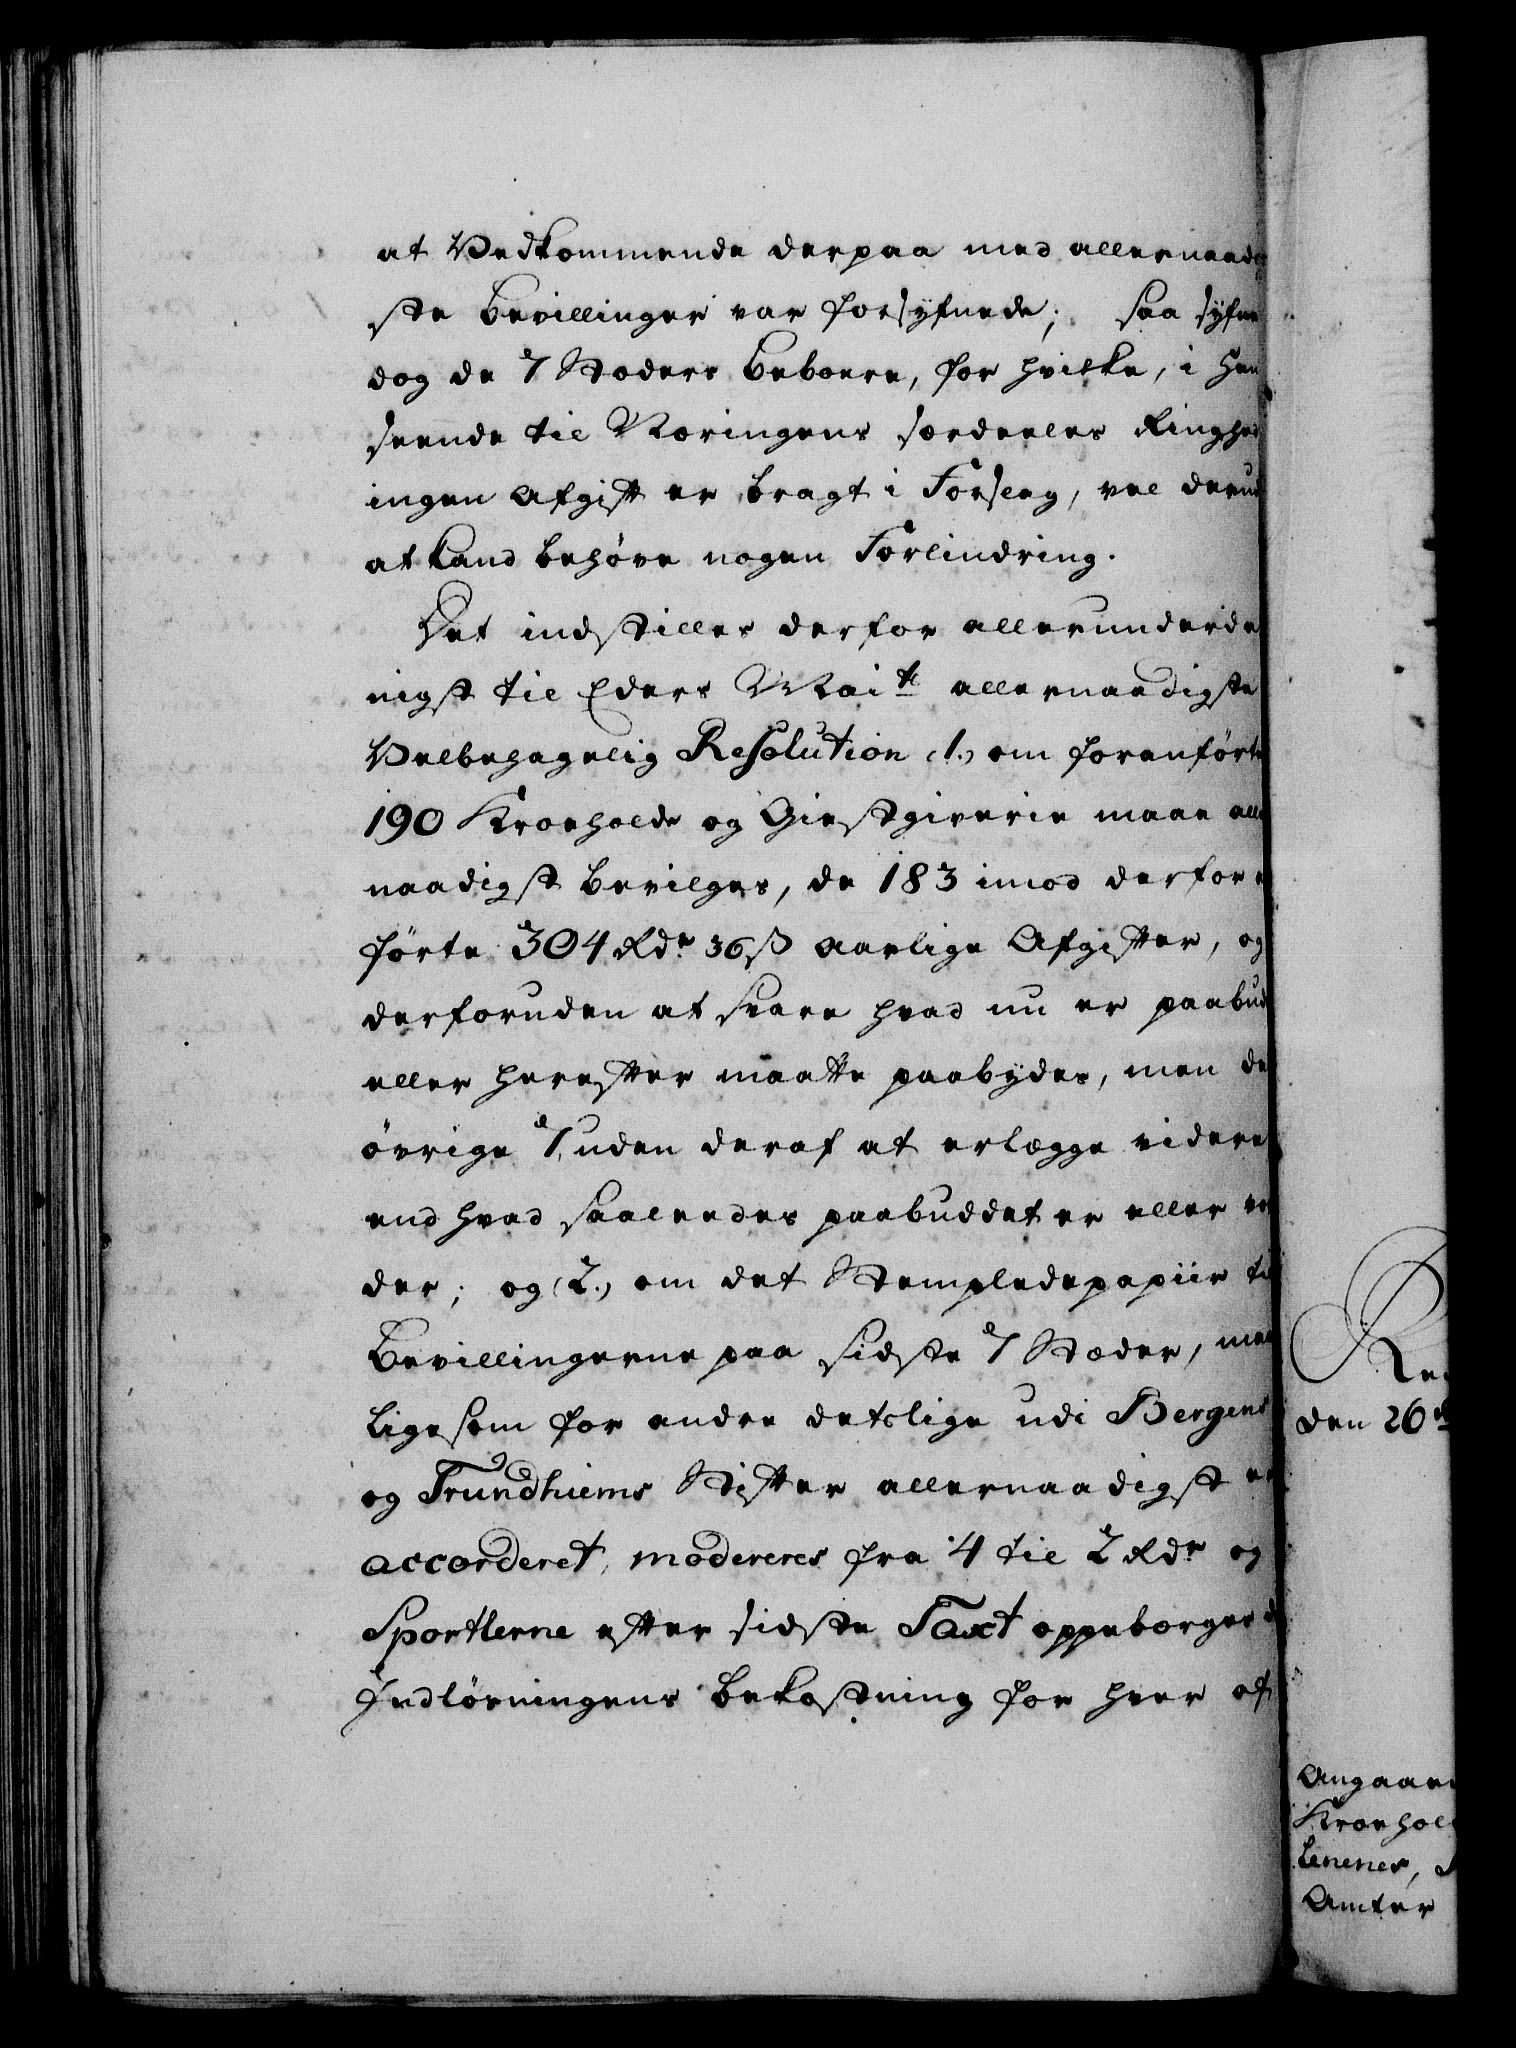 at Vedkommende derpaa med allernaadig
ste Bevillinger var forsyfnede; saa syfne
dog de 7 Stæders Beboere, for hvilke, i Hen
seende til Næringens særdeeles Ringhed
ingen Afgift er bragt i Forslag, vel derud
at kand behøve nogen Forlindring.
Det indstilles derfor allerunderda
nigst til Eders Mai.te allernaadigste
Velbehagelig Resolution (1.) om foranførte
190 Kroehold og Giestgiverie maae aller
naadigst bevilges, de 183 imod derfor
førte 304 Rdr. 36 ß aarlige Afgifter, og
derforuden at svare hvad nu er paabud
eller herefter maatte paabydes, men de
øvrige 7, uden deraf at erlægge videre
end hvad saaleedes paabuddet er eller vor
der; og (2.) om det Stempledepapiir til
Bevillingerne paa sidste 7 Stæder, maa
ligesom for andre detslige udi Bergens
og Trundhiems Stifter allernaadigst er
accorderet, modereres fra 4 til 2 Rdr. og
Sportlerne efter sidste Taxt oppebærges
Indløsningens Bekostning for hver af
Re
den 26
Angaaen
Kroehol
lenenes,
Amter